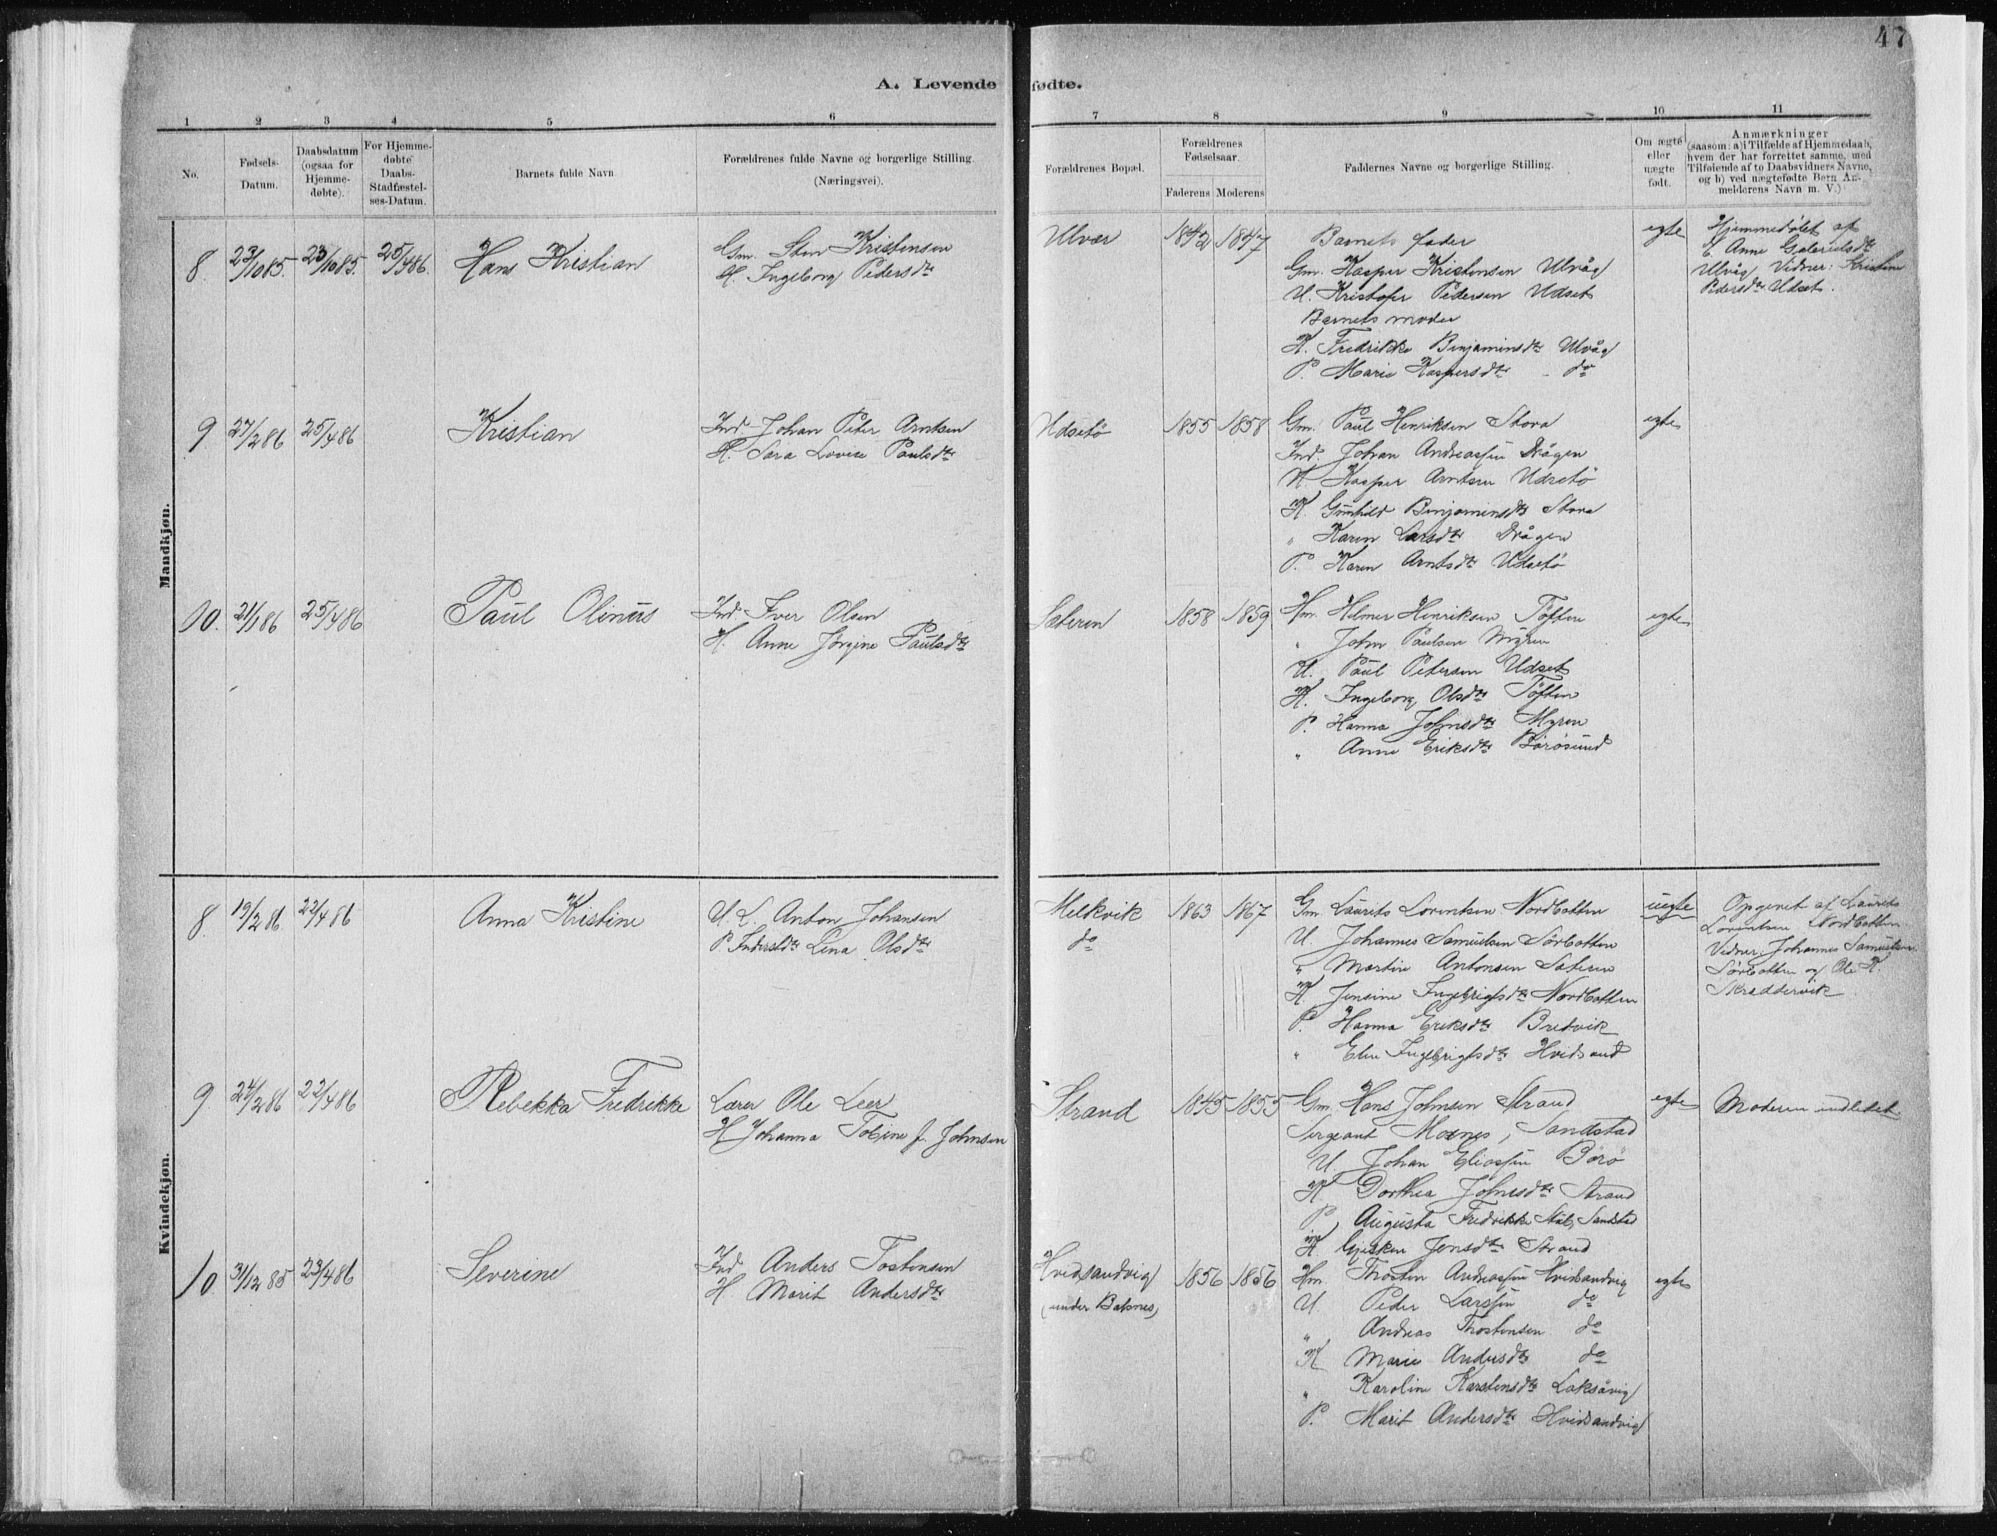 47
A. Levende fødte.
1 2 3 4 5 6 7 8 9 10 11
No.
Fødsels-Datum.
Daabsdatum (ogsaa for Hjemme-døbte).
For Hjemme-døbte Daabs-Stadfæstel-ses-Datum.
Barnets fulde Navn
Forældrenes fulde Navne og borgerlige Stilling. (Næringsvei).
Forældrenes Bopæl.
Forældrenes Fødselsaar.
Faderens Moderens
Faddernes Navne og borgerlige Stilling.
Om ægte eller uægte født.
Anmærkninger (saasom: a) i Tilfælde af Hjemmedaab, hvem der har forrettet samme, med Tilføiende af to Daabsvidners Navne, og b) ved uægtefødte Børn Anmelderens Navn m. V.)
Mandkjøn.
8. 23/10 85. 23/10 85. 25/4 86. Hans Kristian
Gm. Sten Kristensen
H. Ingeborg Pedersdtr
Ulvær 1842 1847
Barnets fader
Gm. Kasper Kristensen Ulvåg
U. Kristofer Pedersen Udset
Barnets moder
K. Fredrikke Benjaminsdtr Ulvåg
P. Marie Kaspersdtr do
egte
Hjemmedøbt af
E. Anne Gabrielsdtr
Ulvåg Vidner: Kristine
Pedersdtr Udset.
9. 27/2 86 25/4 86 Kristian
Ind. Johan Peter Arntsen
H. Sara Lovise Paulsdtr
Udsetö 1855 1858
Gm. Paul Henriksen Stora
Ind. Johan Andreassen Drågen
U. Kasper Arntsen Udsetö
K. Gunhild Benjaminsdtr Stora
" Karen Larsdtr Drågen
P. Karen Arntsdtr Udsetö
egte
10. 21/1 86 25/4 86 Paul Olinus
Ind Iver Olsen
H. Anne Jörgine Paulsdtr
Sæteren 1858 1859
Hm. Helmer Henriksen Töften
" John Paulsen Myren
U. Paul Petersen Udset
K. Ingeborg Olsdtr Töften
P. Hanna Johnsdtr Myren
" Anne Eriksdtr Börösund
egte
Kvindekjøn.
8. 19/2 86. 22/4 86 Anna Kristine
U. L. Anton Johansen
P. Inderstdtr Lena Olsdtr
Melkvik 1863 1867
do
Gm Laurits Lorentsen Nordbotten
U. Johannes Samuelsen Sörbotten
" Martin Antonsen Sæteren
K. Jensine Ingebrigtsdtr Nordbotten
P. Hanna Eriksdtr Bredvik
" Elen Ingebrigtsdtr Hvidsand
uegte
Opgivet af Laurits
Lorentsen Nordbotten.
Vidner Johannes Samuelsen
Sörbotten og Ole K.
Skraddervik
9 24/2 86 22/4 86 Rebekka Fredrikke
Lærer Ole Leer
H Johanna Tobine f. Johnsen
Strand 1845 1855
Gm. Hans Johnsen Strand
Sergeant Moxnes, Sandstad
U. Johan Eliassen Börö
K Dorthea Johnsdtr Strand
P. Augusta Fredrikke Stål, Sandstad
K. Gjisken Jensdtr Strand
egte
Moderen indledet.
10 31/12 85 23/4 86 Severine
Ind Anders Tostensen
H Marit Andersdtr
Hvidsandvig 1856 1856
(under Baknes)
Hm. Thosten Andreassen Hvidsandvig
U. Peder Larssen do
" Andreas Thostensen do
K Marie Andersdtr do
" Karoline Karstensdtr Laksåvig
P. Marit Andersdtr Hvidsandvig
egte